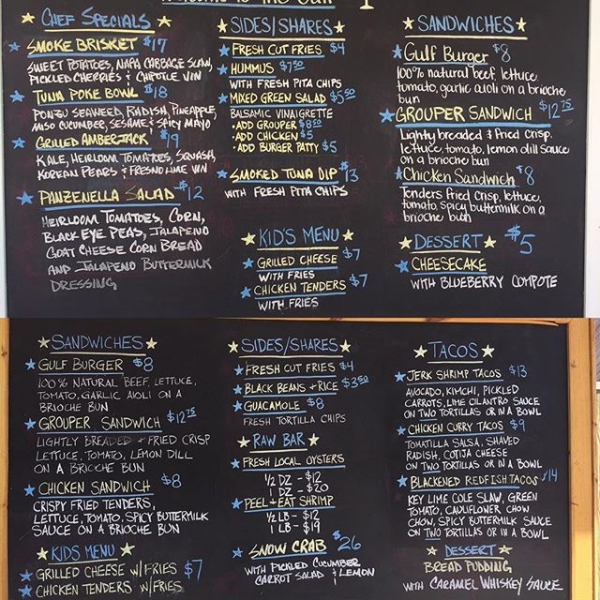 CHEF SPECIALS
SMOKE BRISKET $17
SWEET POTATOES, NAPA CABBAGE SLAW,
PICKLED CHERRIES & CHIPOTLE VIN
TUNA POKE BOWL $18
PONZU SEAWEED, RADISH, PINEAPPLE,
MISO CUCUMBER, SESAME & SPICY MAYO
GRILLED AMBERJACK $19
KALE, HEIRLOOM TOMATOES, SQUASH,
KOREAN PEARS & FRESNO LIME VIN
PANZENELLA SALAD $12
HEIRLOOM TOMATOES, CORN,
BLACK EYE PEAS, JALAPENO
GOAT CHEESE CORN BREAD
AND JALAPENO BUTTERMILK
DRESSING
SIDES/SHARES
FRESH CUT FRIES $4
HUMMUS $7.50
WITH FRESH PITA CHIPS
MIXED GREEN SALAD $5.50
BALSAMIC VINAIGRETTE
•ADD GROUPER $8.50
•ADD CHICKEN $5
•ADD BURGER PATTY $5
SMOKED TUNA DIP $13
WITH FRESH PITA CHIPS
KID'S MENU
GRILLED CHEESE $7
WITH FRIES
CHICKEN TENDERS $7
WITH FRIES
SANDWICHES
Gulf Burger $8
100% natural beef, lettuce,
tomato, garlic aioli on a brioche
bun
GROUPER SANDWICH $12.75
Lightly breaded & fried crisp.
lettuce, tomato, lemon dill sauce
on a brioche bun
Chicken Sandwich $8
Tenders fried crisp, lettuce,
tomato, spicy buttermilk on a
brioche bun
DESSERT $5
CHEESECAKE
WITH BLUEBERRY COMPOTE
SANDWICHES
GULF BURGER $8
100% NATURAL BEEF, LETTUCE,
TOMATO, GARLIC AIOLI ON A
BRIOCHE BUN
GROUPER SANDWICH $12.75
LIGHTLY BREADED + FRIED CRISP
LETTUCE, TOMATO, LEMON DILL
ON A BRIOCHE BUN
CHICKEN SANDWICH $8
CRISPY FRIED TENDERS,
LETTUCE, TOMATO, SPICY BUTTERMILK
SAUCE ON A BRIOCHE BUN
KIDS MENU
GRILLED CHEESE W/FRIES $7
CHICKEN TENDERS W/FRIES
SIDES/SHARES
FRESH CUT FRIES $4
BLACK BEANS + RICE $3.50
GUACAMOLE $8
FRESH TORTILLA CHIPS
RAW BAR
FRESH LOCAL OYSTERS
1/2 DZ - $12
1 DZ - $20
PEEL + EAT SHRIMP
1/2 LB - $12
1 LB - $19
SNOW CRAB $26
WITH PICKLED CUCUMBER
CARROT SALAD & LEMON
TACOS
JERK SHRIMP TACOS $13
AVOCADO, KIMCHI, PICKLED
CARROTS, LIME CILANTRO SAUCE
ON TWO TORTILLAS OR IN A BOWL
CHICKEN CURRY TACOS $9
TOMATILLA SALSA, SHAVED
RADISH, COTIJA CHEESE
ON TWO TORTILLAS OR IN A BOWL
BLACKENED REDFISH TACOS $14
KEY LIME COLE SLAW, GREEN
TOMATO, CAULIFLOWER CHOW
CHOW, SPICY BUTTERMILK SAUCE
ON TWO TORTILLAS OR IN A BOWL
DESSERT
BREAD PUDDING
WITH CARAMEL WHISKEY SAUCE